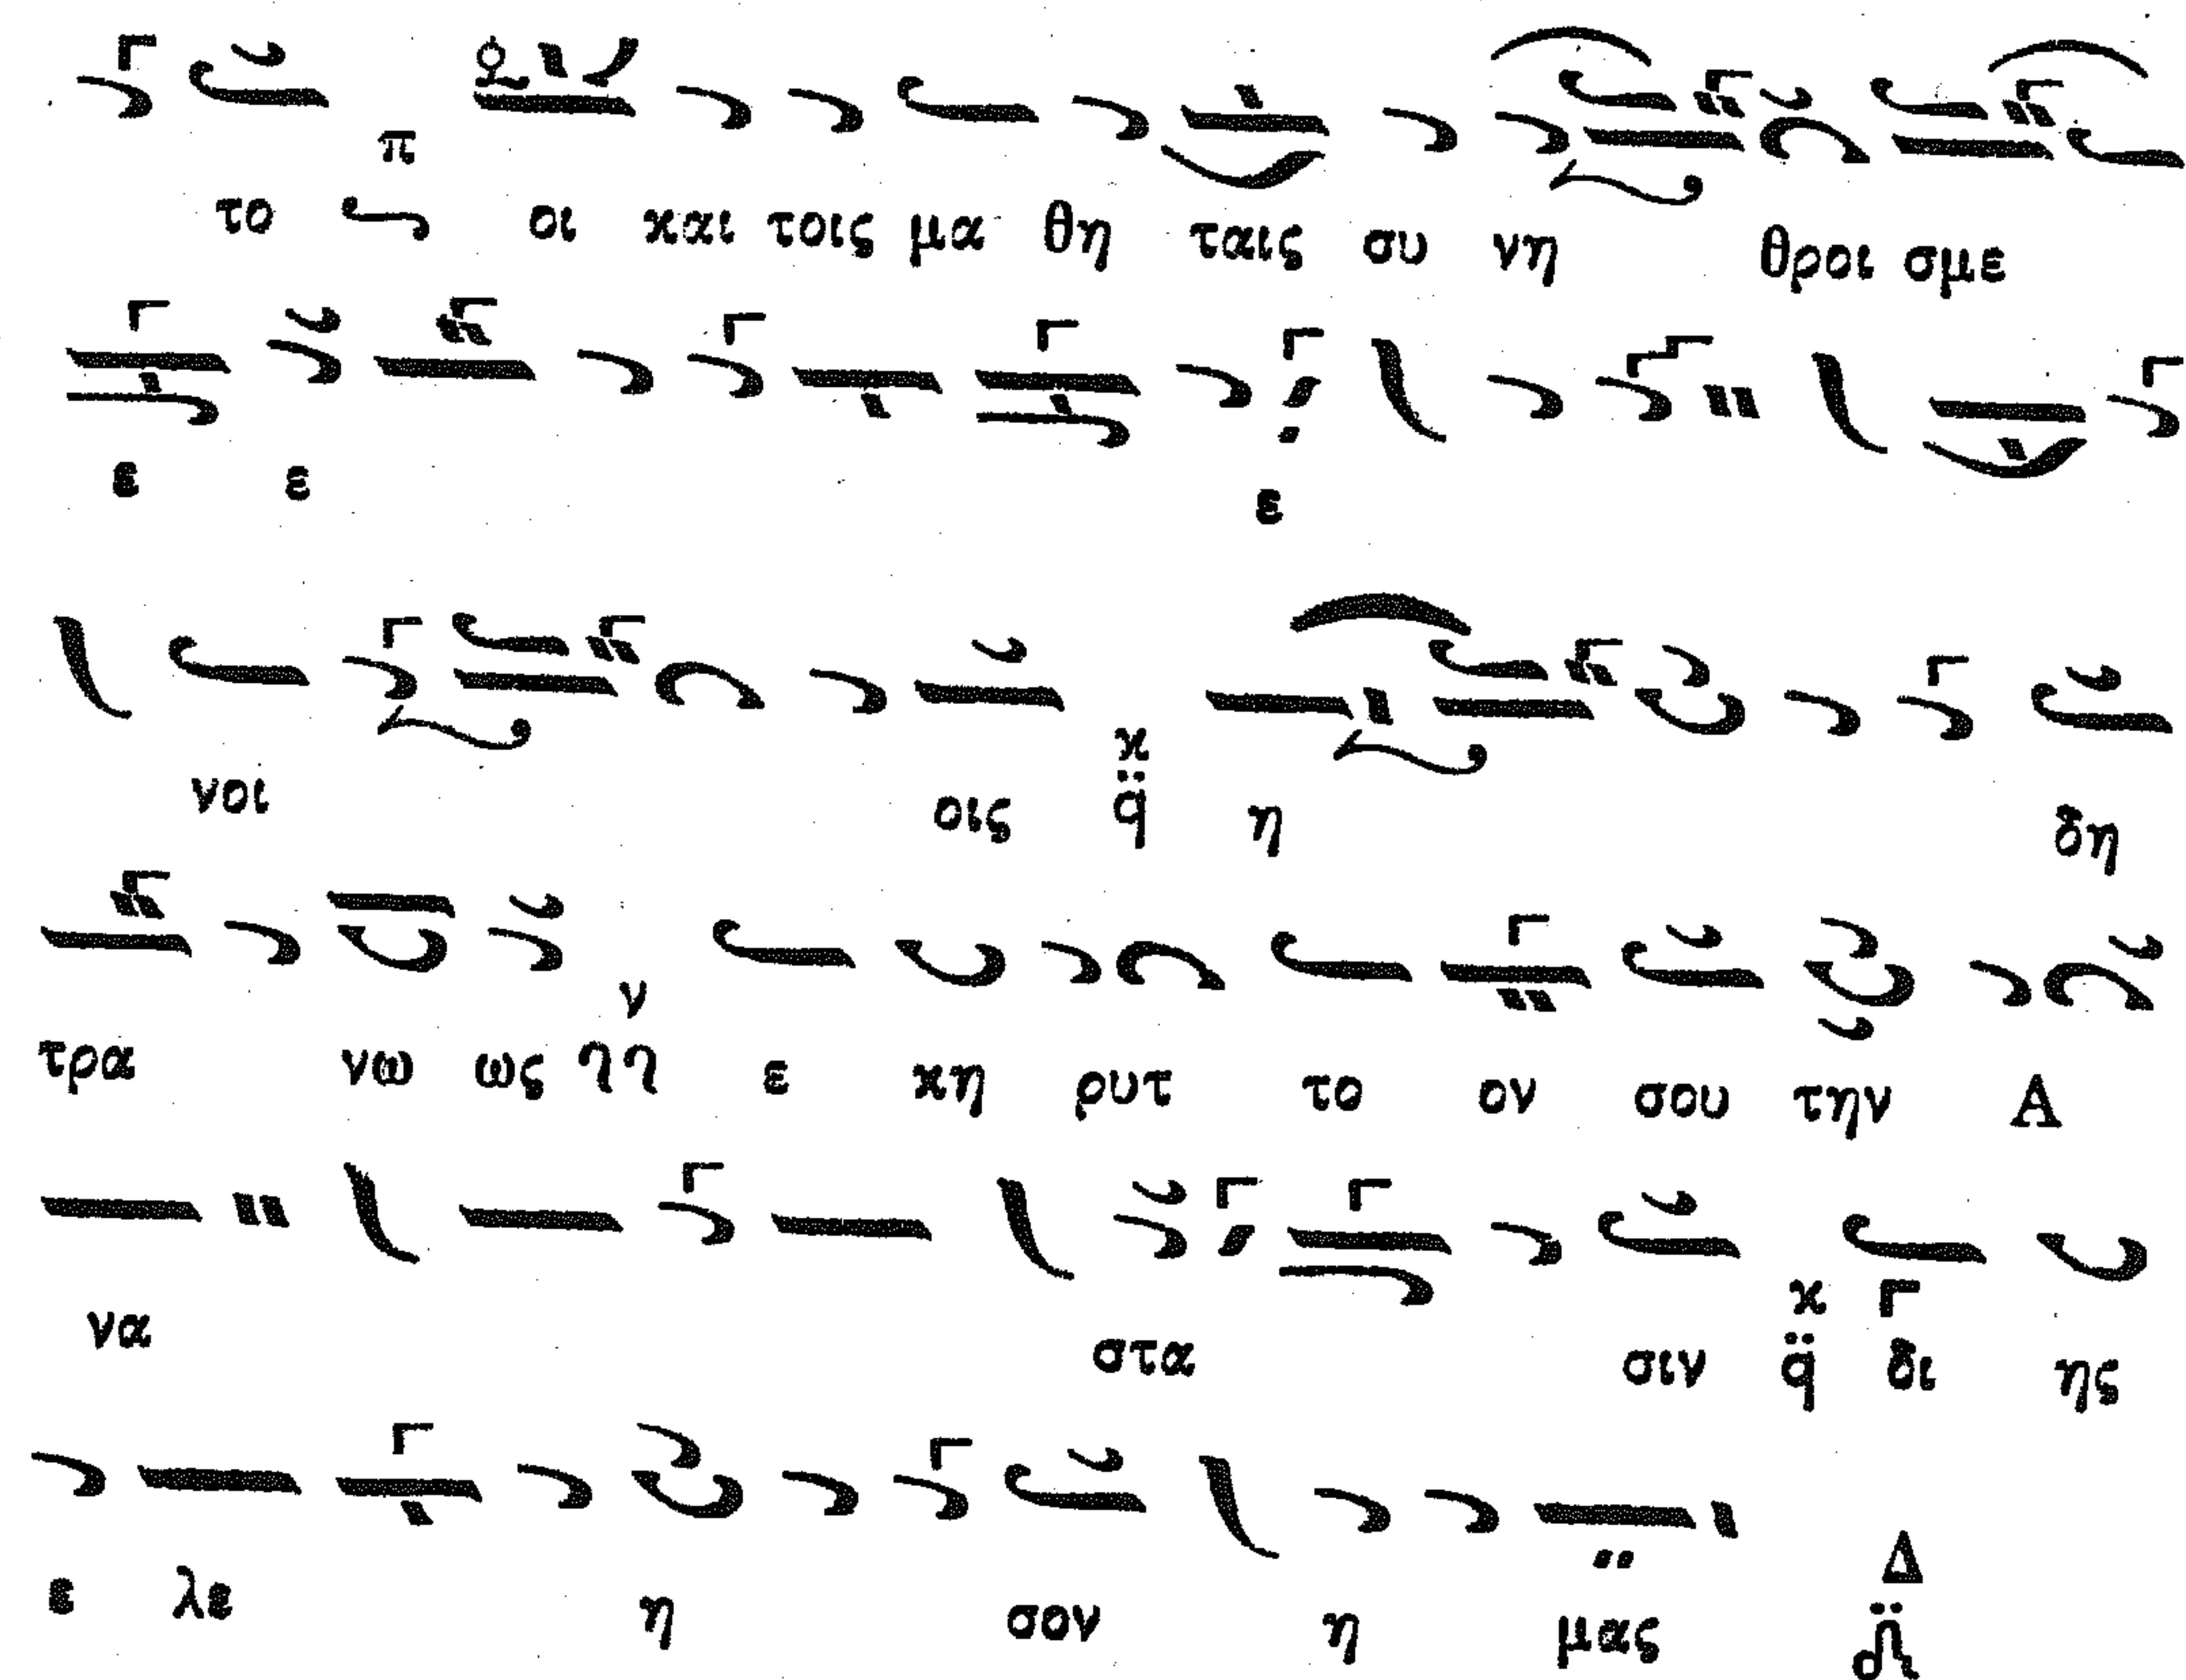 π
το οι και τοις μα θη ταις συ νη θροι σμε
ε ε ε
νοι οις κ q̈ η δη
τρα νω ως ν ε κη ρυτ το ον σου την Α
να στα σιν κ q̈ δι ης
ε λε η σον η μας Δ